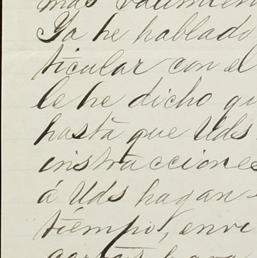 mas
Ya he hablado
ticular con el
le he dicho qu
hasta que Uds
instrucciones
á Uds hagan-
tiempo, envi